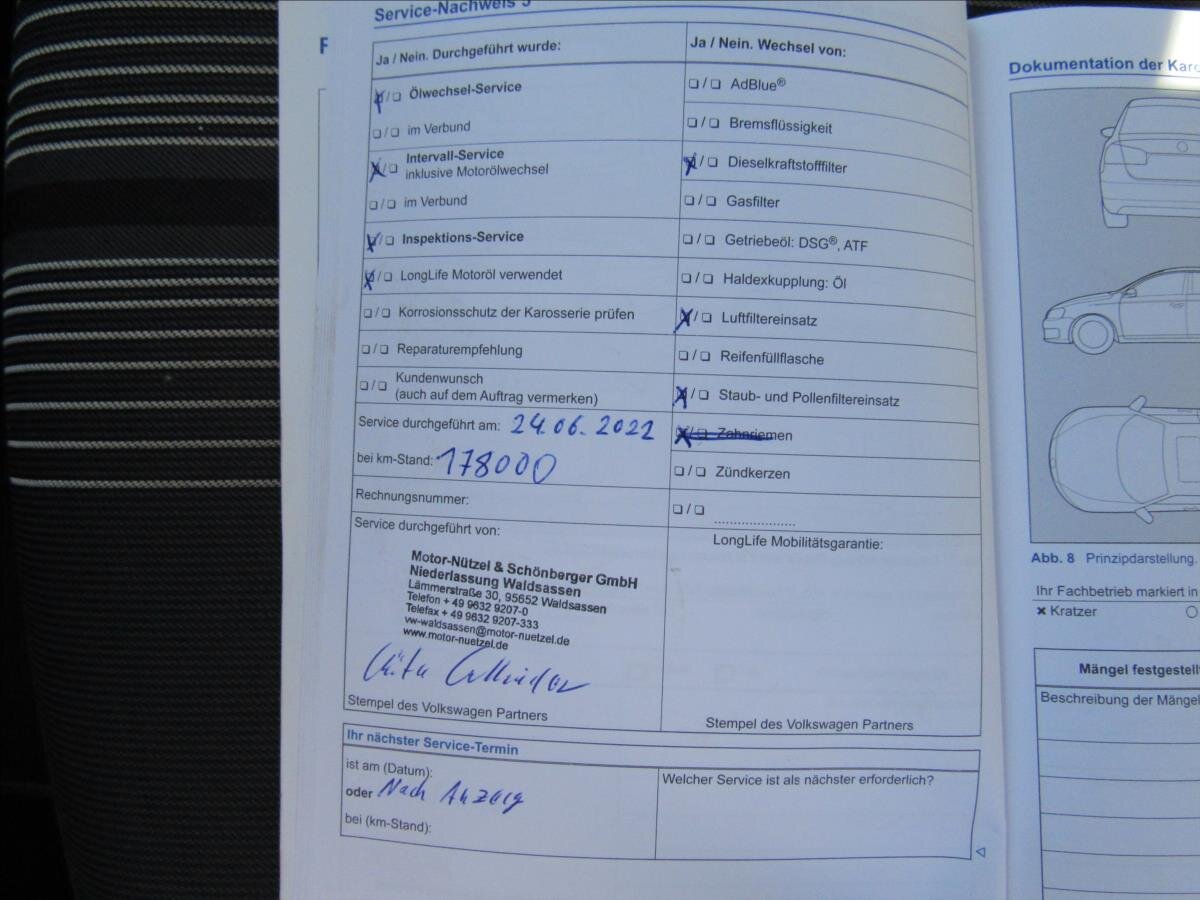 Service-Nachweis
F
Ja / Nein. Durchgeführt wurde:
Ölwechsel-Service
im Verbund
Intervall-Service
inklusive Motorölwechsel
im Verbund
Inspektions-Service
LongLife Motoröl verwendet
Korrosionsschutz der Karosserie prüfen
Reparaturempfehlung
Kundenwunsch
(auch auf dem Auftrag vermerken)
Service durchgeführt am: 24.06.2022
bei km-Stand: 178000
Rechnungsnummer:
Service durchgeführt von:
Motor-Nützel & Schönberger GmbH
Niederlassung Waldsassen
Lämmerstraße 30, 95652 Waldsassen
Telefon + 49 9632 9207-0
Telefax + 49 9632 9207-333
vw-waldsassen@motor-nuetzel.de
www.motor-nuetzel.de
Stempel des Volkswagen Partners
Ja / Nein. Wechsel von:
AdBlue®
Bremsflüssigkeit
Dieselkraftstofffilter
Gasfilter
Getriebeöl: DSG®, ATF
Haldexkupplung: Öl
Luftfiltereinsatz
Reifenfüllflasche
Staub- und Pollenfiltereinsatz
Zahnriemen
Zündkerzen
LongLife Mobilitätsgarantie:
Stempel des Volkswagen Partners
Ihr nächster Service-Termin
ist am (Datum):
oder Nach Anzeig
bei (km-Stand):
Welcher Service ist als nächster erforderlich?
Dokumentation der Karo
Abb. 8 Prinzipdarstellung.
Ihr Fachbetrieb markiert in
× Kratzer
Mängel festgestell
Beschreibung der Mängel